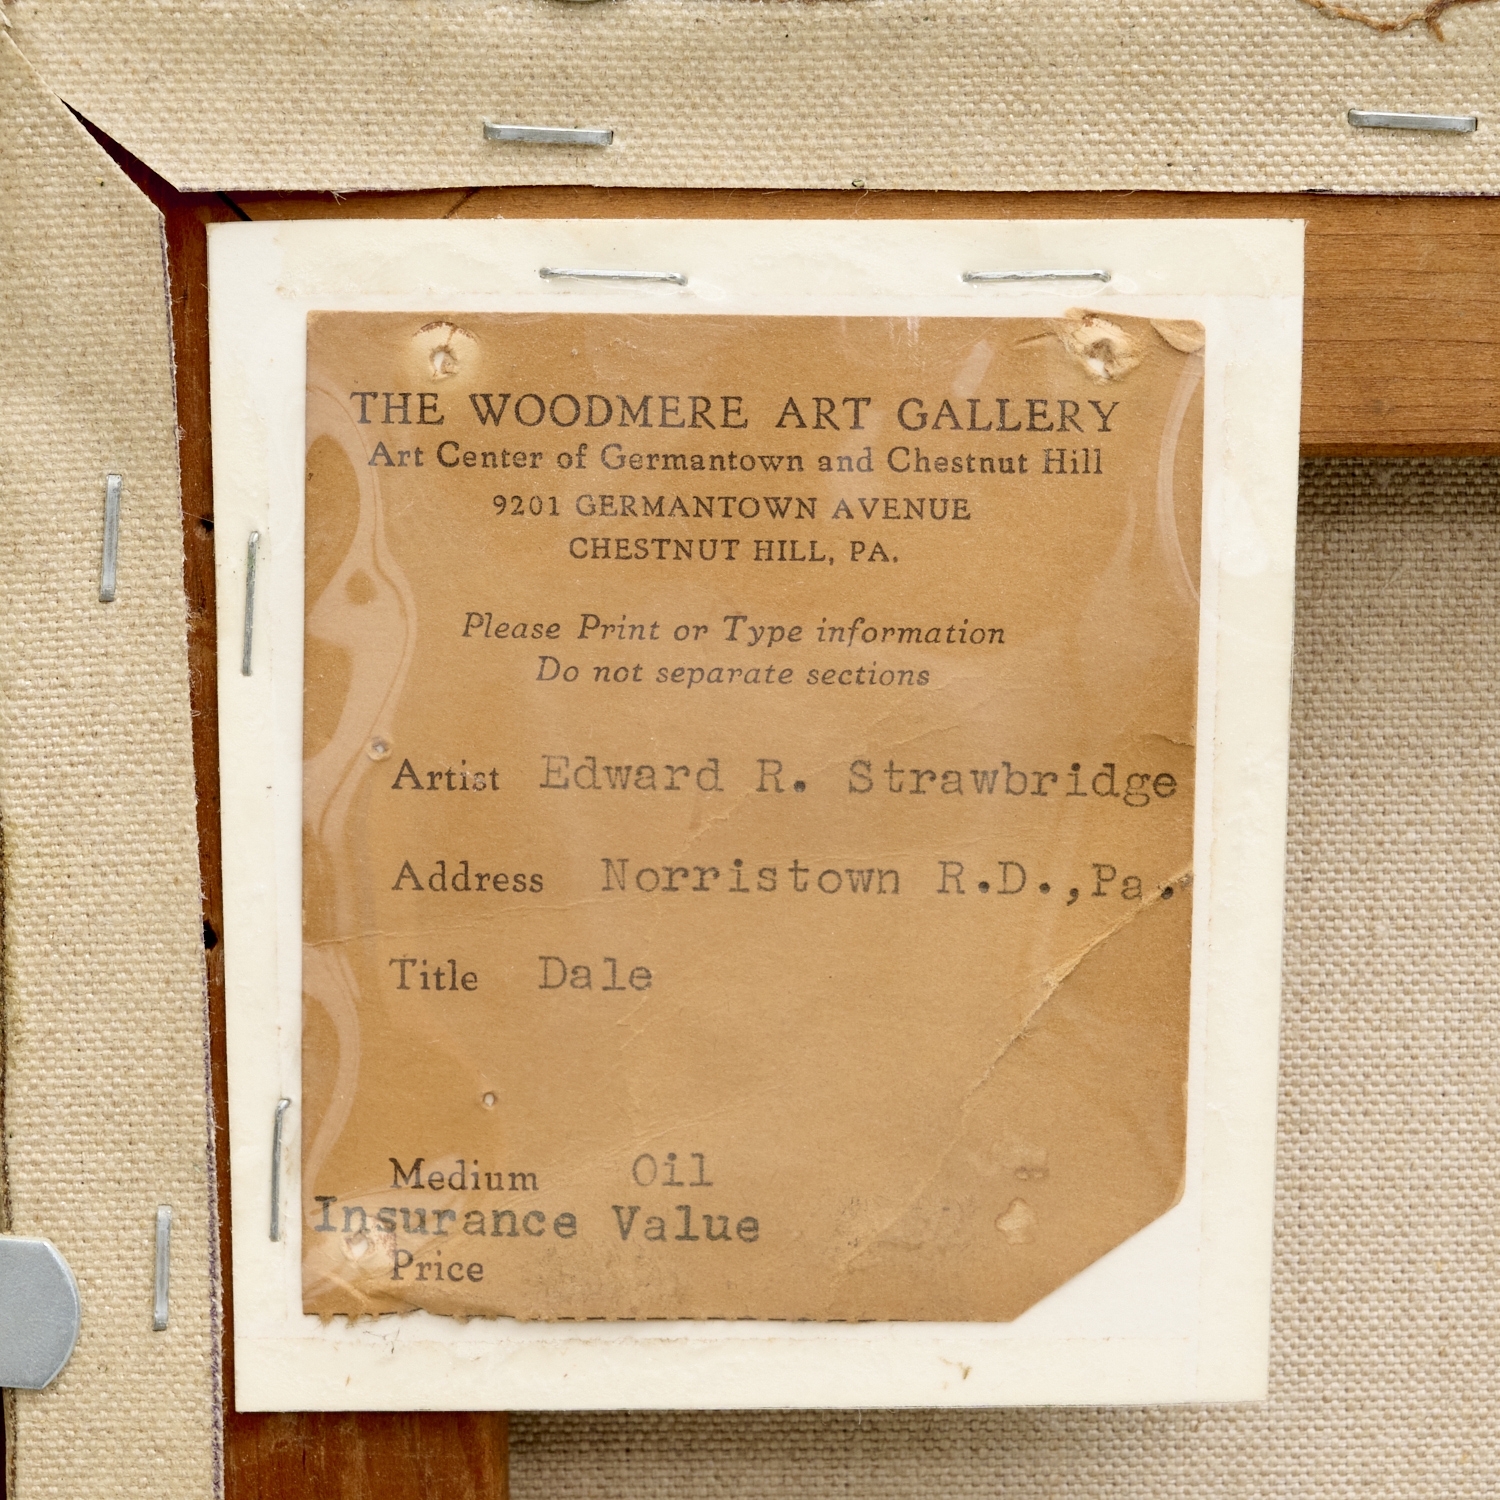 THE WOODMERE ART GALLERY
Art Center of Germantown and Chestnut Hill
9201 GERMANTOWN AVENUE
CHESTNUT HILL, PA.
Please Print or Type information
Do not separate sections
Artist Edward R. Strawbridge
Address Norristown R.D.,Pa.
Title Dale
Medium Oil
Insurance Value
Price